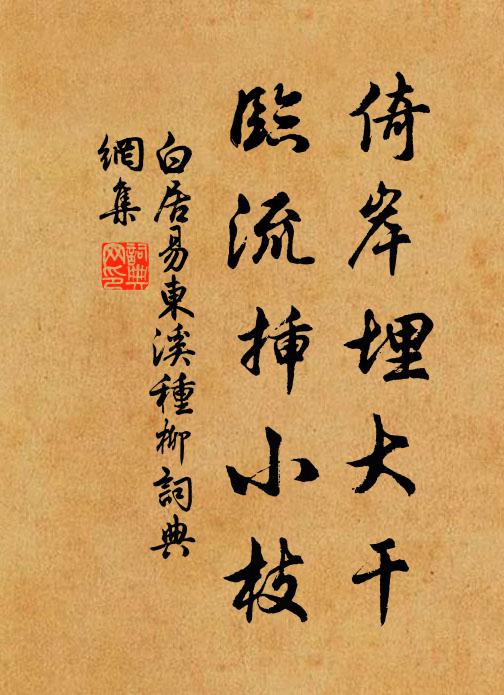 倚岸埋大干
臨流揷小枝
白居易東溪種柳詞典
網集
詞典網印